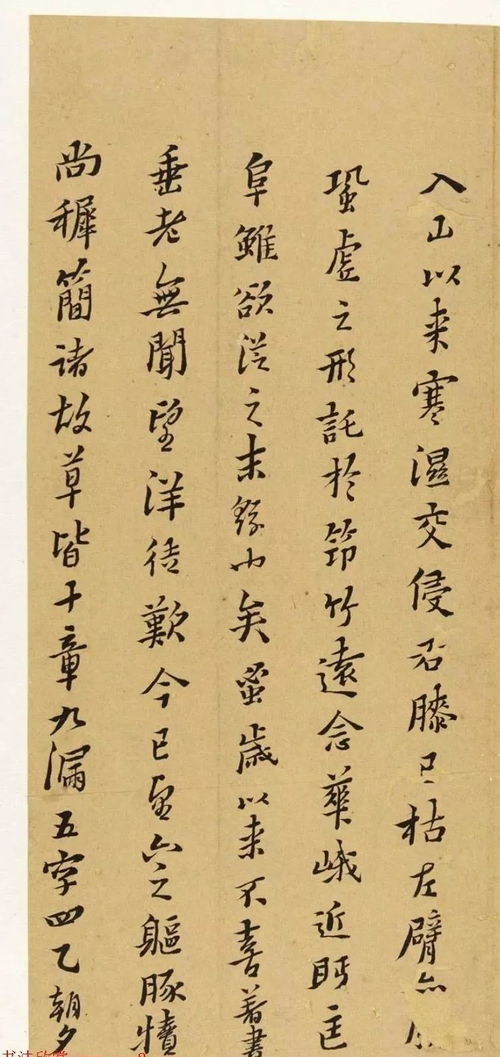 入山以来寒濕交侵右膝已枯左臂亦
蛩虛之形託於笻竹遠念華峨近眄匡
阜雖欲從之末繇也矣蚤歲以来不喜著書
垂老無聞望洋徒歎今已望六之軀豚犢
尚穉簡諸故草皆十章九漏五字四乙朝夕